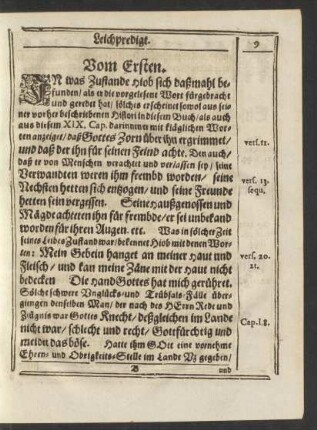 Leichpredigt.
9
Vom Ersten.
IN was Zustande Hiob sich daßmahl be-
funden/ als er die vorgelesene Wort fürgebracht
und geredet hat/ solches erscheinet sowol aus sei-
ner vorher beschriebenen Histori in diesem Buch/ als auch
aus diesem XIX. Cap. darinnen er mit kläglichen Wor-
ten anzeiget/ daß Gottes Zorn über ihn ergrimmet/
und daß der ihn für seinen Feind achte. Den auch/
vers. 11.
daß er von Menschen verachtet und verlassen sey/ seine
Verwandten weren ihm frembd worden/ seine
vers. 13.
Nechsten hetten sich entzogen/ und seine Freunde
sequ.
hetten sein vergessen. Seine Haußgenossen und
Mägde achteten ihn für frembde/ er sei unbekand
worden für ihren Augen. ett. Was in solcher Zeit
seines Leibes Zustand war/ bekennet Hiob mit denen Wor-
ten: Mein Gebein hanget an meiner Haut und
vers. 20.
Fleisch/ und kan meine Zäne mit der Haut nicht
21.
bedecken Die Hand Gottes hat mich gerühret.
Solche schwere Unglücks- und Trübsals-Fälle über
giengen denselben Man/ der nach des HErrn Rede und
Zeügnis war Gottes Knecht/ deßgleichen im Lande
nicht war/ schlecht und recht/ Gottfürchtig und
Cap. I. 8.
meidet das böse. Hatte ihm GOtt eine vornehme
Ehren- und Obrigkeits-Stelle im Lande Uz gegeben/
B
und